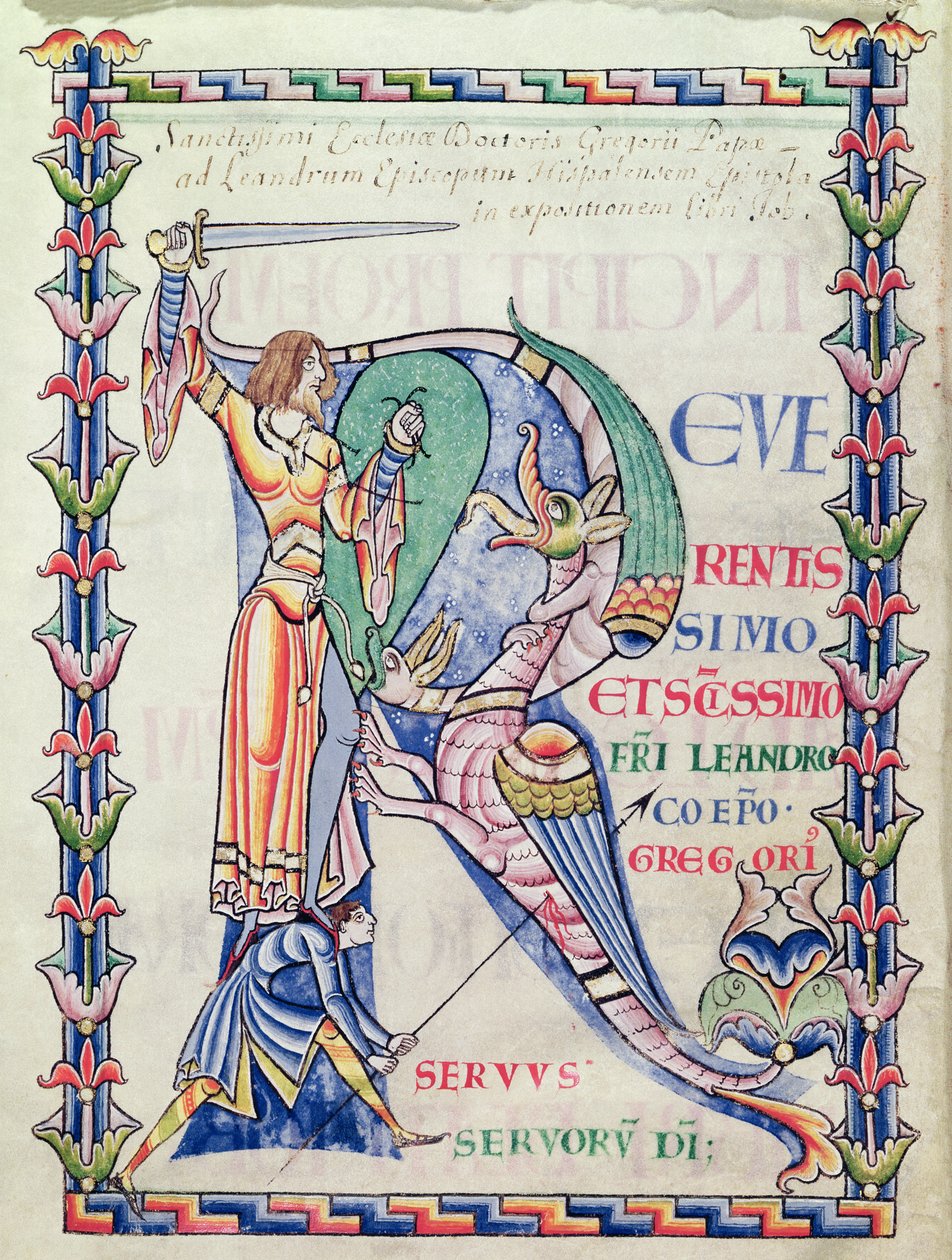 Sanctissimi Ecclesiæ Doctoris Gregorii Papæ –
ad Leandrum Episcopum Hispalensem Epistola
in expositionem libri Job.
R EVE
RENTIS
SIMO
ET SC̅ISSIMO
FR̅I LEANDRO
COEP̅O·
GREGORI⁹
SERVVS
SERVORV̅ DI̅;